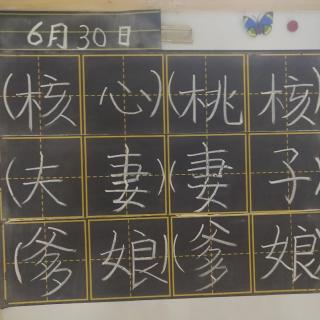 6月30日
(核心)(桃核)
(夫妻)(妻子)
(爹娘)(爹娘)